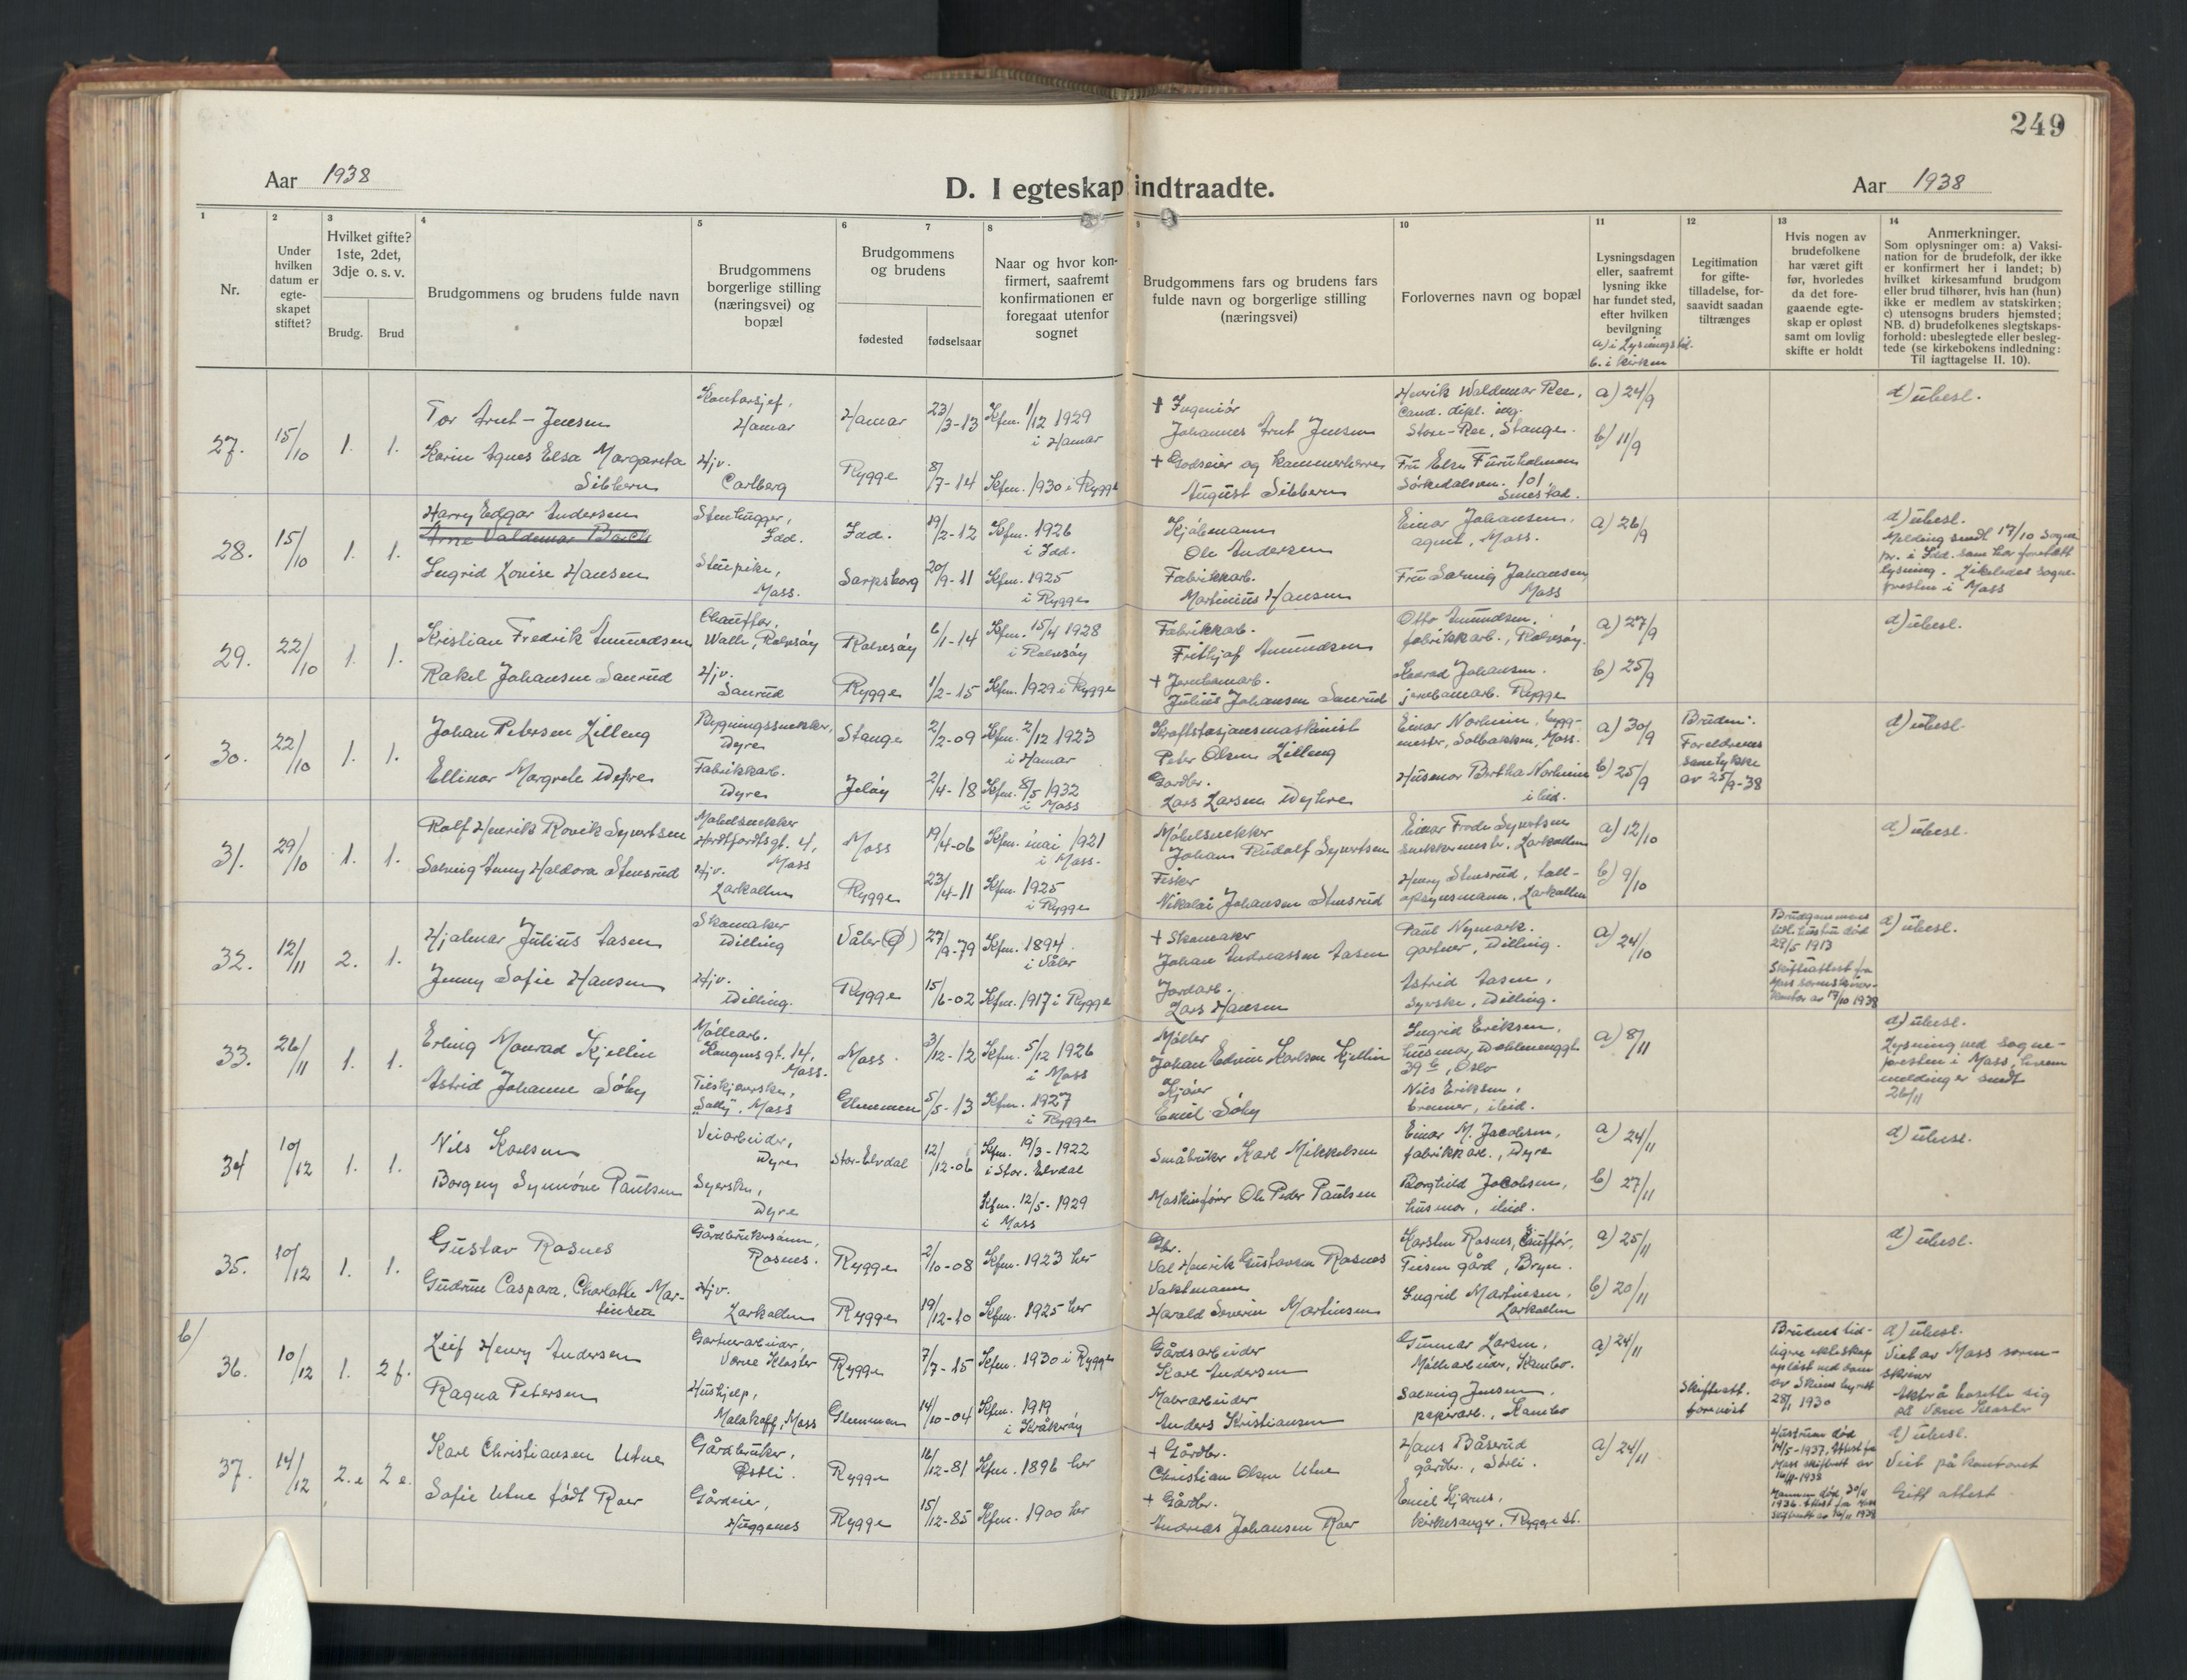 249
Aar 1938
D. I egteskap indtraadte.
Aar 1938
1
Nr.
2
Under hvilken datum er egte- skapet stiftet?
3
Hvilket gifte? 1ste, 2det, 3dje o. s. v.
Brudg. Brud
4
Brudgommens og brudens fulde navn
5
Brudgommens borgerlige stilling (næringsvei) og bopæl
6 7
Brudgommens og brudens
fødested fødselsaar
8
Naar og hvor kon- firmert, saafremt konfirmationen er foregaat utenfor sognet
9
Brudgommens fars og brudens fars fulde navn og borgerlige stilling (næringsvei)
10
Forlovernes navn og bopæl
11
Lysningsdagen eller, saafremt lysning ikke har fundet sted, efter hvilken bevilgning
a) i Lysningstid.
b. i kirken
12
Legitimation for gifte- tilladelse, for- saavidt saadan tiltrænges
13
Hvis nogen av brudefolkene har været gift før, hvorledes da det fore- gaaende egte- skap er opløst samt om lovlig skifte er holdt
14
Anmerkninger.
Som oplysninger om: a) Vaksi- nation for de brudefolk, der ikke er konfirmert her i landet; b) hvilket kirkesamfund brudgom eller brud tilhører, hvis han (hun) ikke er medlem av statskirken; c) utensogns bruders hjemsted; NB. d) brudefolkenes slegtskaps- forhold: ubeslegtede eller besleg- tede (se kirkebokens indledning: Til iagttagelse II. 10).
27. 15/10 1. 1.
Tor Arnt-Jensen
Karin Agnes Elsa Margareta
Sibbern
Kontorsjef,
Hamar
Hjv.
Carlberg
Hamar 23/3-13 Kfm. 1/12 1929
i Hamar
Rygge 8/7-14 Kfm. 1930 i Rygge
† Ingeniør
Johannes Arnt Jensen
† Godseier og Kammerherre
August Sibbern
Henrik Waldemar Ree,
Cand. dipl. ing.
Store-Ree, Stange.
Fru Elsa Furuholmen
Sørkedalsvn. 101,
Smestad.
a) 24/9
b) 11/9
d) ubesl.
28. 15/10 1. 1.
Harry Edgar Andersen
Arne Valdemar
Ingrid Lovise Hansen
Stenhugger,
Idd.
Stuepike,
Moss.
Idd. 19/2-12 Kfm. 1926
i Idd.
Sarpsborg 20/9-11 Kfm. 1925
i Rygge
Kjøbmann
Ole Andersen
Fabrikkarb.
Martinius Hansen
Einar Johansen,
agent, Moss.
Fru Solveig Johansen
Moss
a) 26/9
d) ubesl.
Melding sendt 17/10 Sogne
pr. i Idd. som har foretatt
lysning. Likeledes Sogne-
presten i Moss
29. 22/10 1. 1.
Kristian Fredrik Amundsen
Rakel Johansen Saurud
Chauffør,
Walle, Rolvsøy
Hjv.
Saurud
Rolvsøy 6/1-14 Kfm. 15/4 1928
i Rolvsøy
Rygge 1/2-15 Kfm. 1929 i Rygge
Fabrikkarb.
Frithjof Amundsen
† Jernbanearb.
Julius Johansen Saurud
Otto Amundsen,
fabrikkarb., Rolvsøy.
Konrad Johansen.
jernbanearb. Rygge
a) 27/9
b) 25/9
d) ubesl.
30. 22/10 1. 1.
Johan Petersen Lilleng
Ellinor Margrete Dyre
Bygningssnekker,
Dyre
Fabrikkarb.
Dyre
Stange 2/2-09 Kfm. 2/12 1923
i Hamar
Jeløy 2/4-18 Kfm. 8/5 1932
i Moss
Kraftstasjonsmaskinist
Peter Olsen Lilleng
Gårdbr.
Lars Larsen Dyhre
Einar Norheim, bygg-
mester, Solbakken, Moss.
Husmor Bertha Norheim
ibid.
a) 30/9
b) 25/9
Bruden:
Foreldrenes
samtykke
av 25/9-38
d) ubesl.
31. 29/10 1. 1.
Rolf Henrik Rovik Syvertsen
Solveig Anny Haldora Stensrud
Møbelsnekker
4,
Moss
Hjv.
Larkollen
Moss 19/4-06 Kfm. mai 1921
i Moss.
Rygge 23/4-11 Kfm. 1925
i Rygge
Møbelsnekker
Johan Rudolf Syvertsen
Fisker
Nikolai Johansen Stensrud
Einar Frode Syvertsen
snekkermester, Larkollen
Henry Stensrud, toll-
opsynsmann, Larkollen
a) 12/10
b) 9/10
d) ubesl.
32. 12/11 2. 1.
Hjalmar Julius Aasen
Jenny Sofie Hansen
Skomaker
Dilling
Hjv.
Dilling.
Våler (Ø) 27/9-79 Kfm. 1894
i Våler
Rygge 15/6-02 Kfm. 1917 i Rygge
† Skomaker
Johan Andreassen Aasen
Jordarb.
Lars Hansen
Paul Nymark.
gartner, Dilling.
Astrid Aasen,
Syerske, Dilling.
a) 24/10
Brudgommens
tidl. hustru død
29/5 1913
Skifteattest fra
Moss sorenskriver-
kontor av 17/10 1938
d) ubesl.
33. 26/11 1. 1.
Erling Monrad Kjellin
Astrid Johanne Søby
Møllearb.
Haugesgt. 14,
Moss.
"Solly", Moss
Moss. 3/12-12 Kfm. 5/12 1926
i Moss
Glemmen 5/5-13 Kfm. 1927
i Rygge
Møller
Johan Edvin Karlsen Kjellin
Kjører
Emil Søby
Ingrid Eriksen,
husmor,
39 b, Oslo
Nils Eriksen,
brenner, ibid.
a) 8/11
d) ubesl.
Lysning ved Sogne-
presten i Moss, hvem
melding er sendt
26/11
34 10/12 1. 1.
Nils Karlsen
Borgny Synnøve Paulsen
Veiarbeider,
Dyre
Syerske,
Dyre
Stor-Elvdal 12/12-06 Kfm. 19/3-1922
i Stor. Elvdal
Kfm. 12/5-1929
i Moss
Småbruker Karl Mikkelsen
Maskinfører Ole Peder Paulsen
Einar M. Jacobsen,
fabrikkarb., Dyre
Borghild Jacobsen,
husmor, ibid.
a) 24/11
b) 27/11
d) ubesl.
35. 10/12 1. 1.
Gustav Rosnes
Gudrun Caspara, Charlotte Mar-
tinsen
Gårdbrukersønn,
Rosnes.
Hjv.
Larkollen
Rygge 2/10-08 Kfm. 1923 her
Rygge 19/12-10 Kfm. 1925 her
Gbr.
Val Henrik Gustavsen Rosnes
Vaktmann
Harald Severin Martinsen
Karsten Rosnes, Chauffør,
gård, Bryn.
Ingrid Martinsen,
Larkollen
a) 25/11
b) 20/11
d) ubesl.
b/
36. 10/12 1. 2 f.
Leif Henry Andersen
Ragna Petersen
Gartnerarbeider,
Værne Kloster
Hushjelp,
Malakoff, Moss
Rygge 7/7-15 Kfm. 1930 i Rygge
Glemmen 14/10-04 Kfm. 1919
i Kråkerøy
Gårdsarbeider
Karl Andersen
Murarbeider
Anders Kristiansen
Gunnar Larsen,
Møllearbeider, Kambo.
Solveig Jensen,
papirarb., Kambo
a) 24/11
Skifteatt.
forevist
Brudens tid-
ligere ekteskap
opløst ved dom
av byrett
28/1 1930
d) ubesl.
Viet av Moss soren-
skriver
Aktrå bosette sig
på Værne Kloster
37. 14/12 2. e 2 e.
Karl Christiansen Utne
Sofie Utne født Roer
Gårdbruker,
Østli.
Gårdeier,
Huggenes
Rygge 16/12-81 Kfm. 1896 her
Rygge 15/12-85 Kfm. 1900 her
† Gårdbr.
Christian Olsen Utne
† Gårdbr.
Andreas Johansen Roer
Hans Båserud
gårdbr., Sørli.
Emil Kjærnes,
kirkesanger, Rygge st.
a) 24/11
Hustruen død
14/5-1937. Attest fra
Moss skifterett av
16/11-1938
Mannen død 30/11
1936. Attest fra Moss
skifterett av 16/11 1938
d) ubesl.
Viet på kontoret
Gift attest.